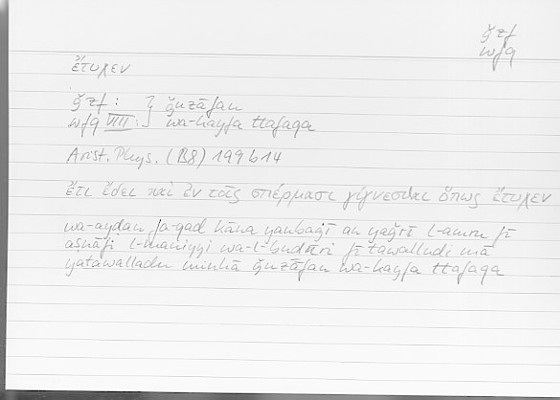 ǧzf
wfq
ἔτυχεν
ǧzf : } ǧuzāfan
wfq VIII : } wa-kayfa ttafaqa
Arist. Phys. (B8) 199b14
ἔτι ἔδει καὶ ἐν τοῖς σπέρμασι γίγνεσθαι ὅπως ἔτυχεν
wa-ayḍan fa-qad kāna yanbaġī an yaǧrī l-amru fī
aṣnāfi l-maniyyi wa-l-buḏūri fī tawalludi mā
yatawalladu minhā ǧuzāfan wa-kayfa ttafaqa